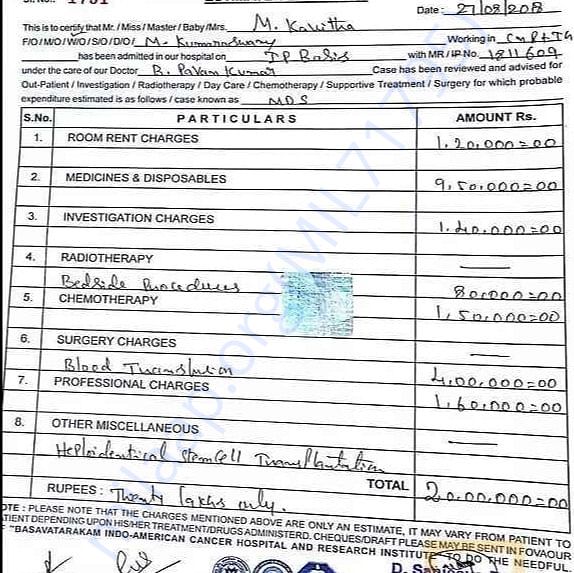 Date : 27/08/2018
This is to certify that Mr. / Miss / Master / Baby /Mrs. M. Kavitha
F/O / M/O / W/O / S/O / D/O / M. Kumaraswamy Working in
has been admitted in our hospital on IP Basis with MR / IP No. 1811609
under the care of our Doctor B. Pavan Kumar Case has been reviewed and advised for
Out-Patient / Investigation / Radiotherapy / Day Care / Chemotherapy / Supportive Treatment / Surgery for which probable
expenditure estimated is as follows / case known as MDS
S.No. PARTICULARS AMOUNT Rs.
1. ROOM RENT CHARGES 1,20,000=00
2. MEDICINES & DISPOSABLES 9,50,000=00
3. INVESTIGATION CHARGES 1,40,000=00
4. RADIOTHERAPY —
Bedside Procedures 80,000=00
5. CHEMOTHERAPY 1,50,000=00
6. SURGERY CHARGES —
Blood Transfusion 4,00,000=00
7. PROFESSIONAL CHARGES 1,60,000=00
8. OTHER MISCELLANEOUS —
Heploidentical Stemcell Transplantation
RUPEES : Twenty lakhs only. TOTAL 20,00,000=00
OTE : PLEASE NOTE THAT THE CHARGES MENTIONED ABOVE ARE ONLY AN ESTIMATE, IT MAY VARY FROM PATIENT TO
ATIENT DEPENDING UPON HIS/HER TREATMENT/DRUGS ADMINISTERD. CHEQUES/DRAFT PLEASE MAY BE SENT IN FOVAOUR
F "BASAVATARAKAM INDO-AMERICAN CANCER HOSPITAL AND RESEARCH INSTITUTE" TO DO THE NEEDFUL.